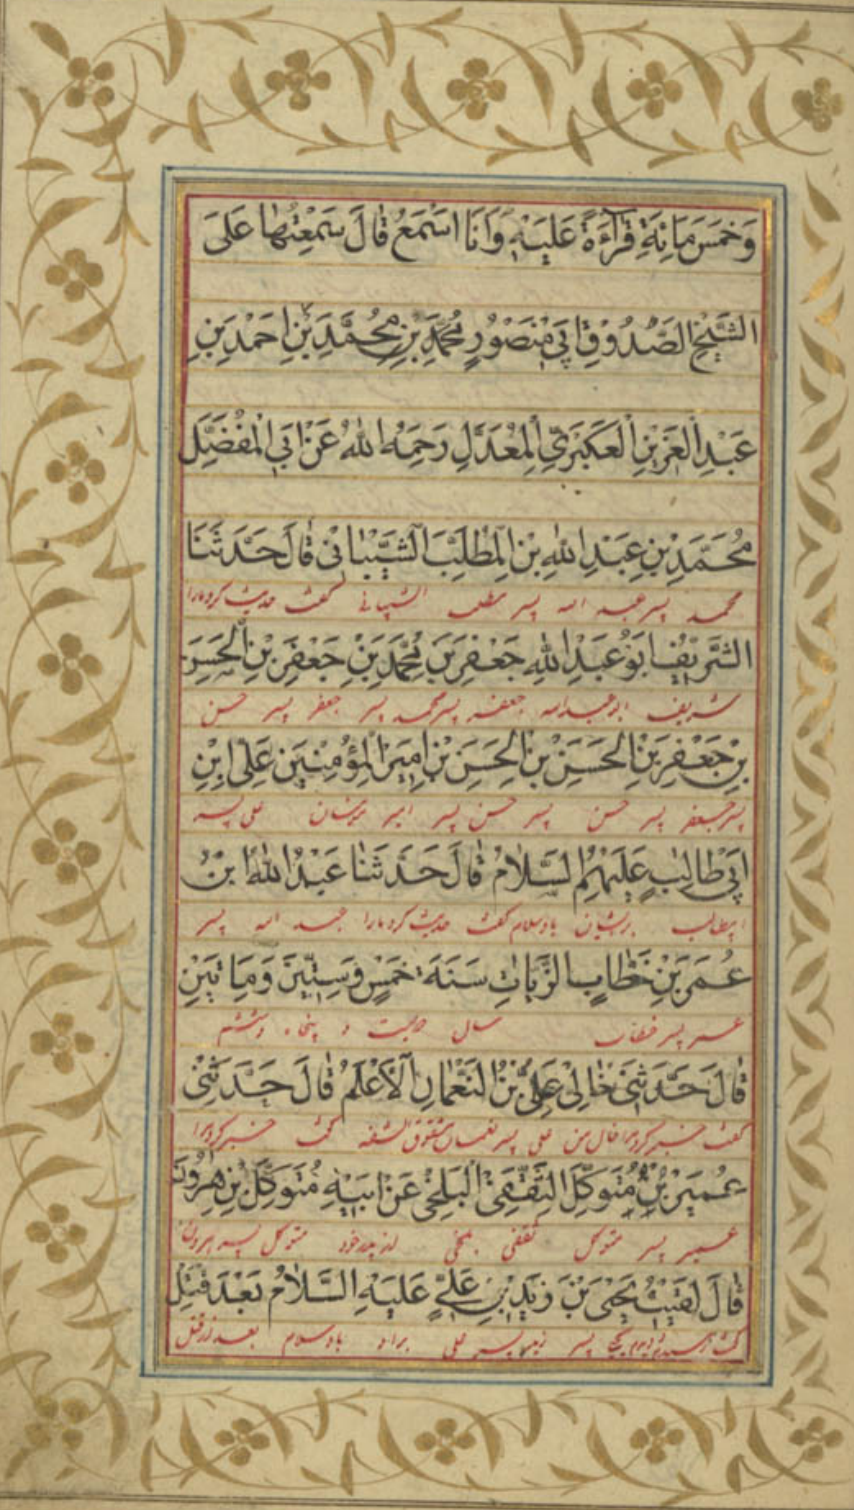 وَخَمْسَ مِائَةٍ قِرَآءَةً عَلَيْهِ وَاَنَا اَسْمَعُ قالَ سَمِعْتُها عَلَى
الشَّيْخِ الصَّدُوقِ اَبِي مَنْصُورٍ مُحَمَّدِ بْنِ مُحَمَّدِ بْنِ اَحْمَدَ بْنِ
عَبْدِ الْعَزيزِ الْعُكْبَرِيِّ الْمُعَدَّلِ رَحِمَهُ اللهُ عَنْ اَبِي الْمُفَضَّلِ
مُحَمَّدِ بْنِ عَبْدِ اللهِ بْنِ الْمُطَّلِبِ الشَّيْبانِيِّ قالَ حَدَّثَنَا
محمد پسر عبد الله پسر مطلب الشیبانی گفت حدیث کرد مارا
الشَّرِيفُ اَبُو عَبْدِ اللهِ جَعْفَرُ بْنُ مُحَمَّدِ بْنِ جَعْفَرِ بْنِ الْحَسَنِ
شریف ابو عبدالله جعفر پسر محمد پسر جعفر پسر حسن
بْنِ جَعْفَرِ بْنِ الْحَسَنِ بْنِ الْحَسَنِ بْنِ اَمِيرِ الْمُؤْمِنِينَ عَلِيِّ ابْنِ
پسر جعفر پسر حسن پسر حسن پسر امیر مؤمنان علی پسر
اَبِي طالِبٍ عَلَيْهِمُ السَّلامُ قالَ حَدَّثَنا عَبْدُ اللهِ ابْنُ
ابیطالب برایشان باد سلام گفت حدیث کرد مارا عبد الله پسر
عُمَرَ بْنِ خَطَّابٍ الزَّيَّاتُ سَنَةَ خَمْسٍ وَسِتِّينَ وَمِاتَيْنِ
عمر پسر خطاب سال دویست و پنجاه و ششم
قالَ حَدَّثَنِي خالِي عَلِيُّ بْنُ النُّعْمانِ الْاَعْلَمُ قالَ حَدَّثَنِي
گفت خبر کرد مرا خال من علی پسر نعمان مشقوق الشفه گفت خبر کرد مرا
عُمَيْرُ بْنُ مُتَوَكِّلِ الثَّقَفِيُّ الْبَلْخِيُّ عَنْ اَبِيهِ مُتَوَكِّلِ بْنِ هرُونَ
عمیر پسر متوکل ثقفی بلخی از پدر خود متوکل پسر هرون
قالَ لَقِيتُ يَحْيَى بْنَ زَيْدِ بْنِ عَلِيٍّ عَلَيْهِ السَّلامُ بَعْدَ قَتْلِ
گفت پسر زید پسر علی براو باد سلام بعد از قتل